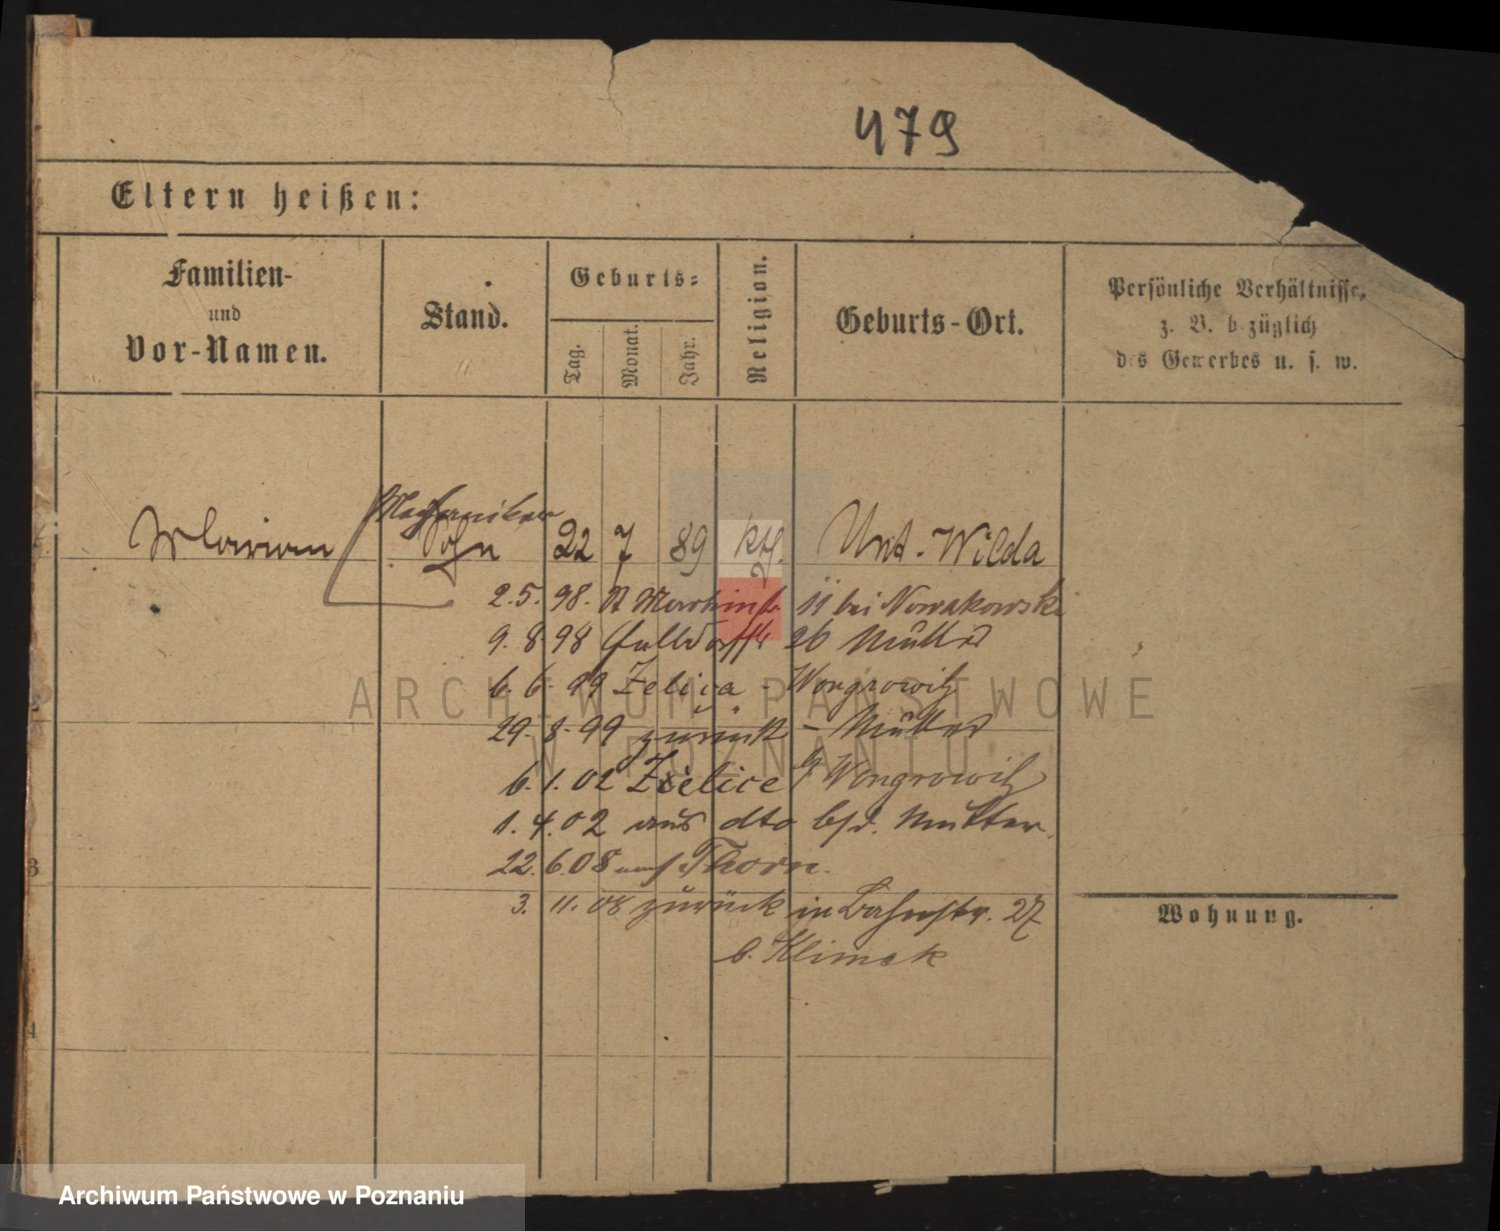 479
Eltern heißen:
Familien-
und
Vor-Namen.
Stand.
Geburts-
Tag.
Monat.
Jahr.
Religion.
Geburts-Ort.
Persönliche Verhältnisse,
z. B. bezüglich
des Gewerbes u. s. w.
Marian Sohn 22 7 89 kth. Unt. Wilda
2.5. 98. 11 bei Nowakowski
9. 8 98 26 Mutter
6. 6. 99 Zelice - Wongrowitz
29. 8. 99 zurück - Mutter
6. 1. 02 Zelice b/ Wongrowitz
1. 4. 02 aus dto Mutter
22. 6. 08 auf Thorn.
3. 11. 08 zurück in Bahnstr. 27
b. Klimek
3
Wohnung.
4
ARCHIWUM PAŃSTWOWE
W POZNANIU
Archiwum Państwowe w Poznaniu